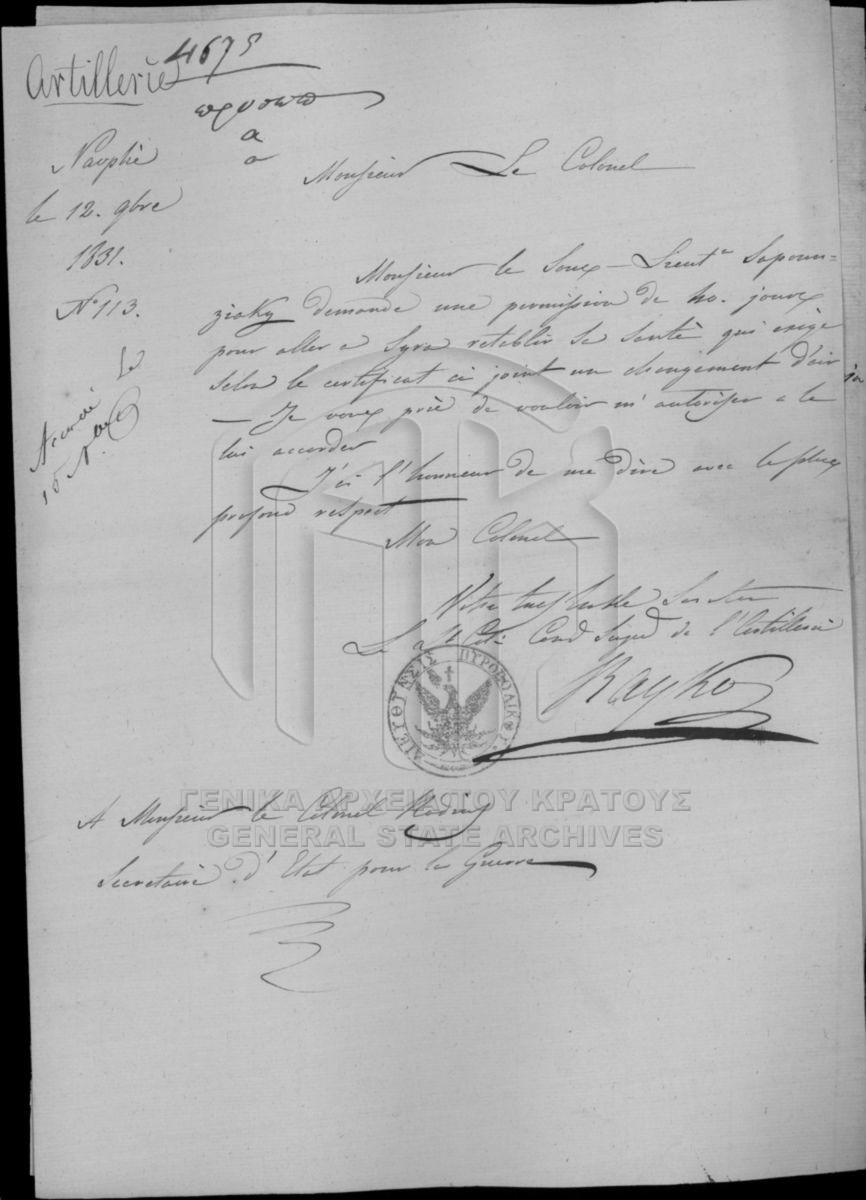 Artillerie
4675
προσωπ
α
Nauplie
le 12. 9bre
1831.
N° 113.
Accordé le
15 Nov
Monsieur Le Colonel
Monsieur le Sous-Lieut. Sapoun-
ziaky demande une permission de 40. jours
pour aller a Syra retablir sa santé qui exige
selon le certificat ci joint un changement d'air
— Je vous prie de vouloir m'autoriser a le
lui accorder
J'ai l'honneur de me dire avec le plus
profond respect
Mon Colonel
Votre tres humble Serviteur
Le Lt Col. Comd Supr de l'Artillerie
Rayko
ΔΙΕΥΘΥΝΣΙΣ ΠΥΡΟΒΟΛΙΚΟΥ
ΓΕΝΙΚΑ ΑΡΧΕΙΑ ΤΟΥ ΚΡΑΤΟΥΣ
GENERAL STATE ARCHIVES
A Monsieur le Colonel Rodius
Secretaire d'Etat pour la Guerre